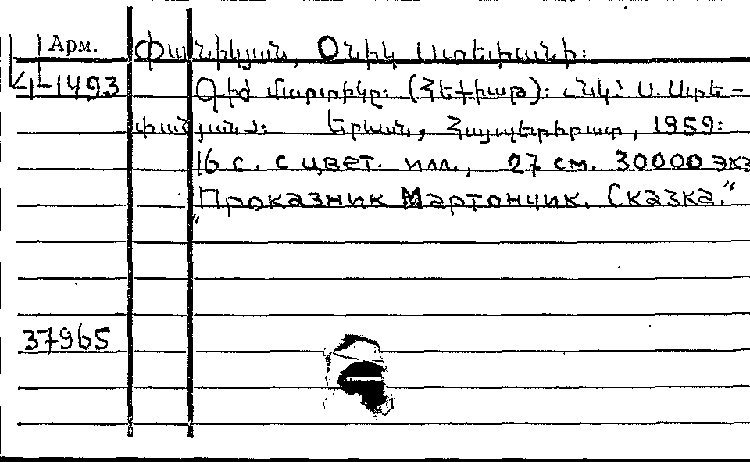 Арм.
4-1493
Փանիկյան, Օնիկ Ստեփանի:
Գիժ մարտիկը: (Հեքիաթ): Նկ.՝ Ս. Ստե-
փանյանը: Երևան, Հայպետհրատ, 1959:
16 с. с цвет. илл., 27 см. 30000 экз
"Проказник Мартончик. Сказка."
37965